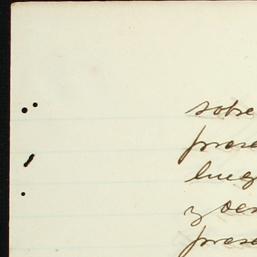 sobre
prese
lueg
y den
prese